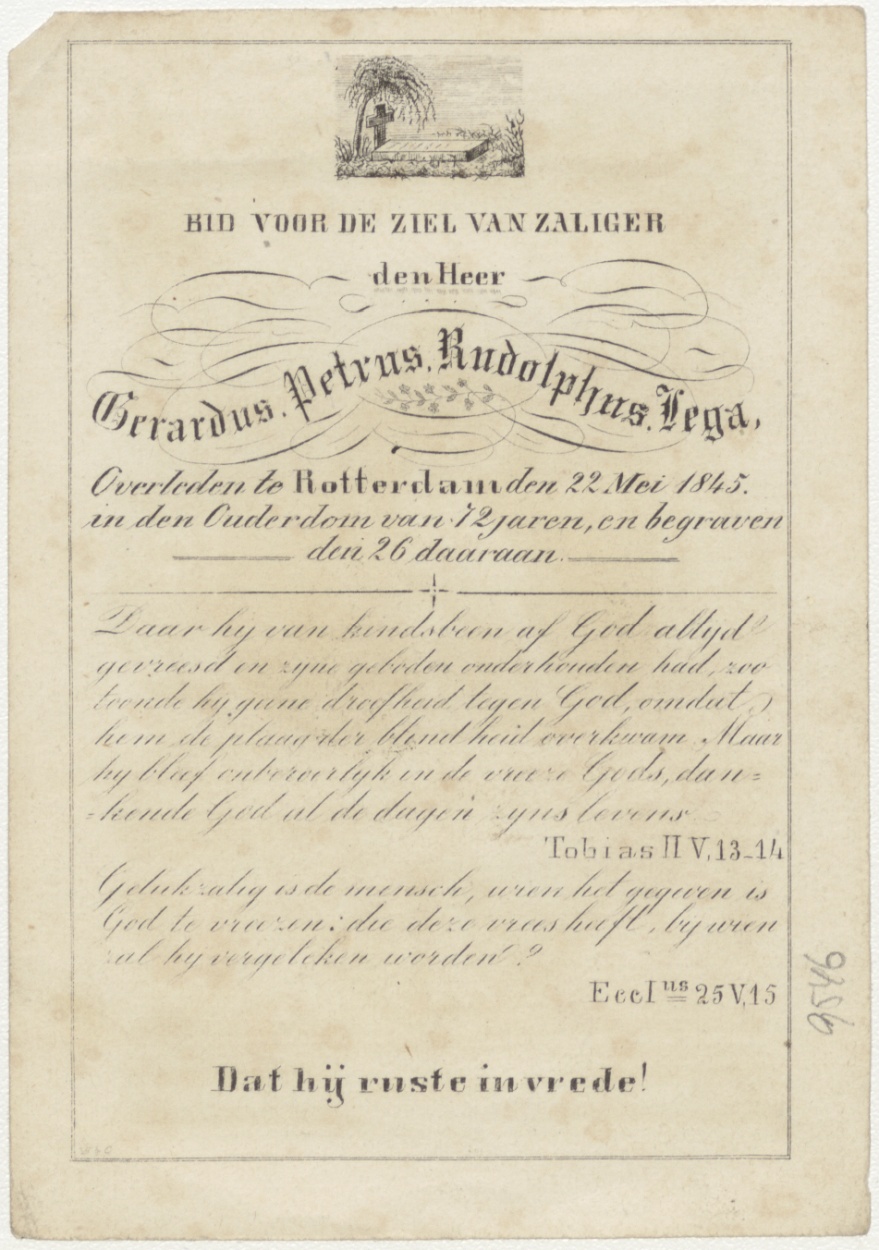 BID VOOR DE ZIEL VAN ZALIGER
den Heer
Gerardus. Petrus. Rudolphus. Lega,
Overleden te Rotterdam den 22 Mei 1845.
in den Ouderdom van 72 jaren, en begraven
den 26 daaraan.
Daar hy van kindsbeen af God altyd
gevreesd en zyne geboden onderhouden had, zoo
toonde hy geene droefheid tegen God, omdat
hem de plaag der blindheid overkwam. Maar
hy bleef onberoerlyk in de vreeze Gods, dan=
=kende God al de dagen zyns levens
Tobias II V, 13-14
Gelukzalig is de mensch, wien het gegeven is
God te vreezen: die deze vrees heeft, by wien
zal hy vergeleken worden?
Eccl<sup>us</sup> 25 V, 15
Dat hij ruste in vrede!